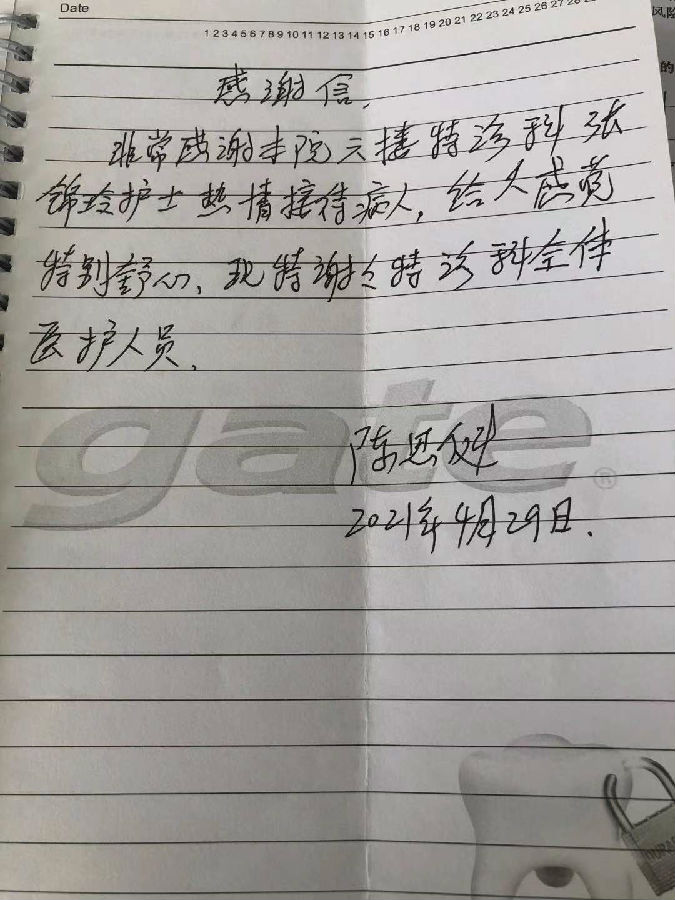 Date
1 2 3 4 5 6 7 8 9 10 11 12 13 14 15 16 17 18 19 20 21 22 23 24 25 26 27 28
风险
的
感谢信.
非常感谢本院六楼特诊科张
锦玲护士热情接待病人, 给人感觉
特别舒心、现特谢谢特诊科全体
医护人员.
gate®
陈恩
2021年4月29日.